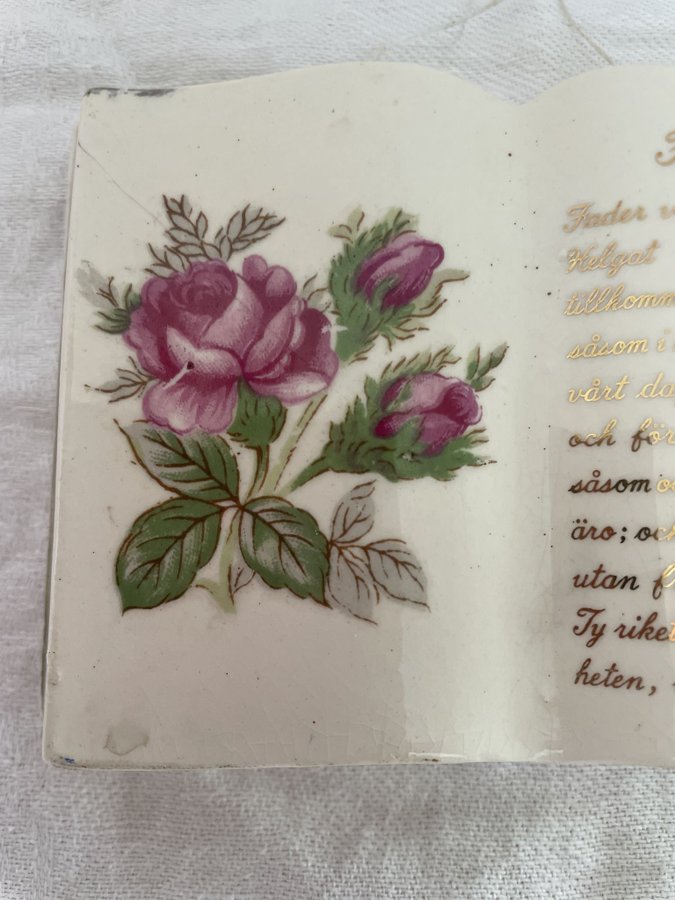 Fader v
Helgat
tillkomm
såsom i
vårt da
och för
såsom o
äro; oc
utan f
Ty riket
heten,